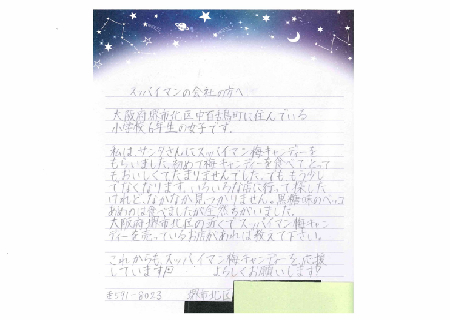 スッパイマンの会社の方へ
大阪府堺市北区中百舌鳥町に住んでいる
小学校6年生の女子です。
私は、サンタさんにスッパイマン梅キャンディーを
もらいました。初めて梅キャンディーを食べてとって
もおいしくてたまりませんでした。でももう少し
でなくなります。いろいろな店に行って探した
けれど、なかなか見つかりません。黒糖味のべっこう
あめかは食べましたが全然ちがいました。
大阪府堺市北区の近くでスッパイマン梅キャン
ディーを売っているお店があれば教えて下さい。
これからも、スッパイマン梅キャンディーを応援
しています よろしくお願いします
〒591-8023 堺市北区